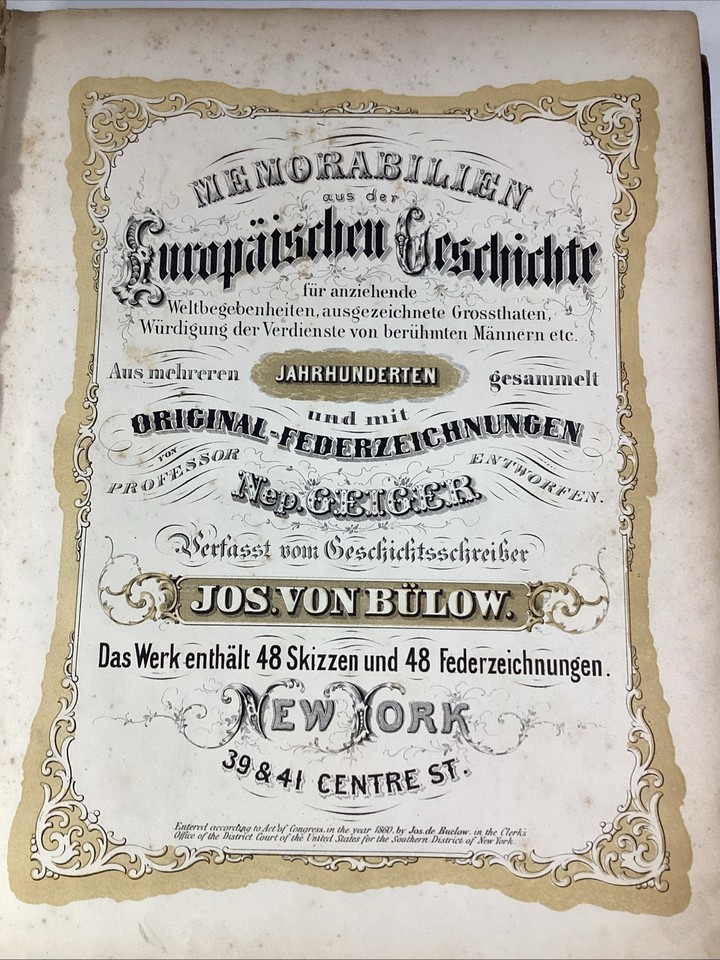 MEMORABILIEN
aus der
Europäischen Geschichte
für anziehende
Weltbegebenheiten, ausgezeichnete Grossthaten,
Würdigung der Verdienste von berühmten Männern etc.
Aus mehreren JAHRHUNDERTEN gesammelt
und mit
ORIGINAL-FEDERZEICHNUNGEN
VON PROFESSOR Nep. GEIGER ENTWORFEN.
Verfasst vom Geschichtsschreiber
JOS. VON BÜLOW.
Das Werk enthält 48 Skizzen und 48 Federzeichnungen.
NEW YORK
39 & 41 CENTRE ST.
Entered according to Act of Congress, in the year 1860, by Jos. de Buelow, in the Clerk's
Office of the District Court of the United States for the Southern District of New York